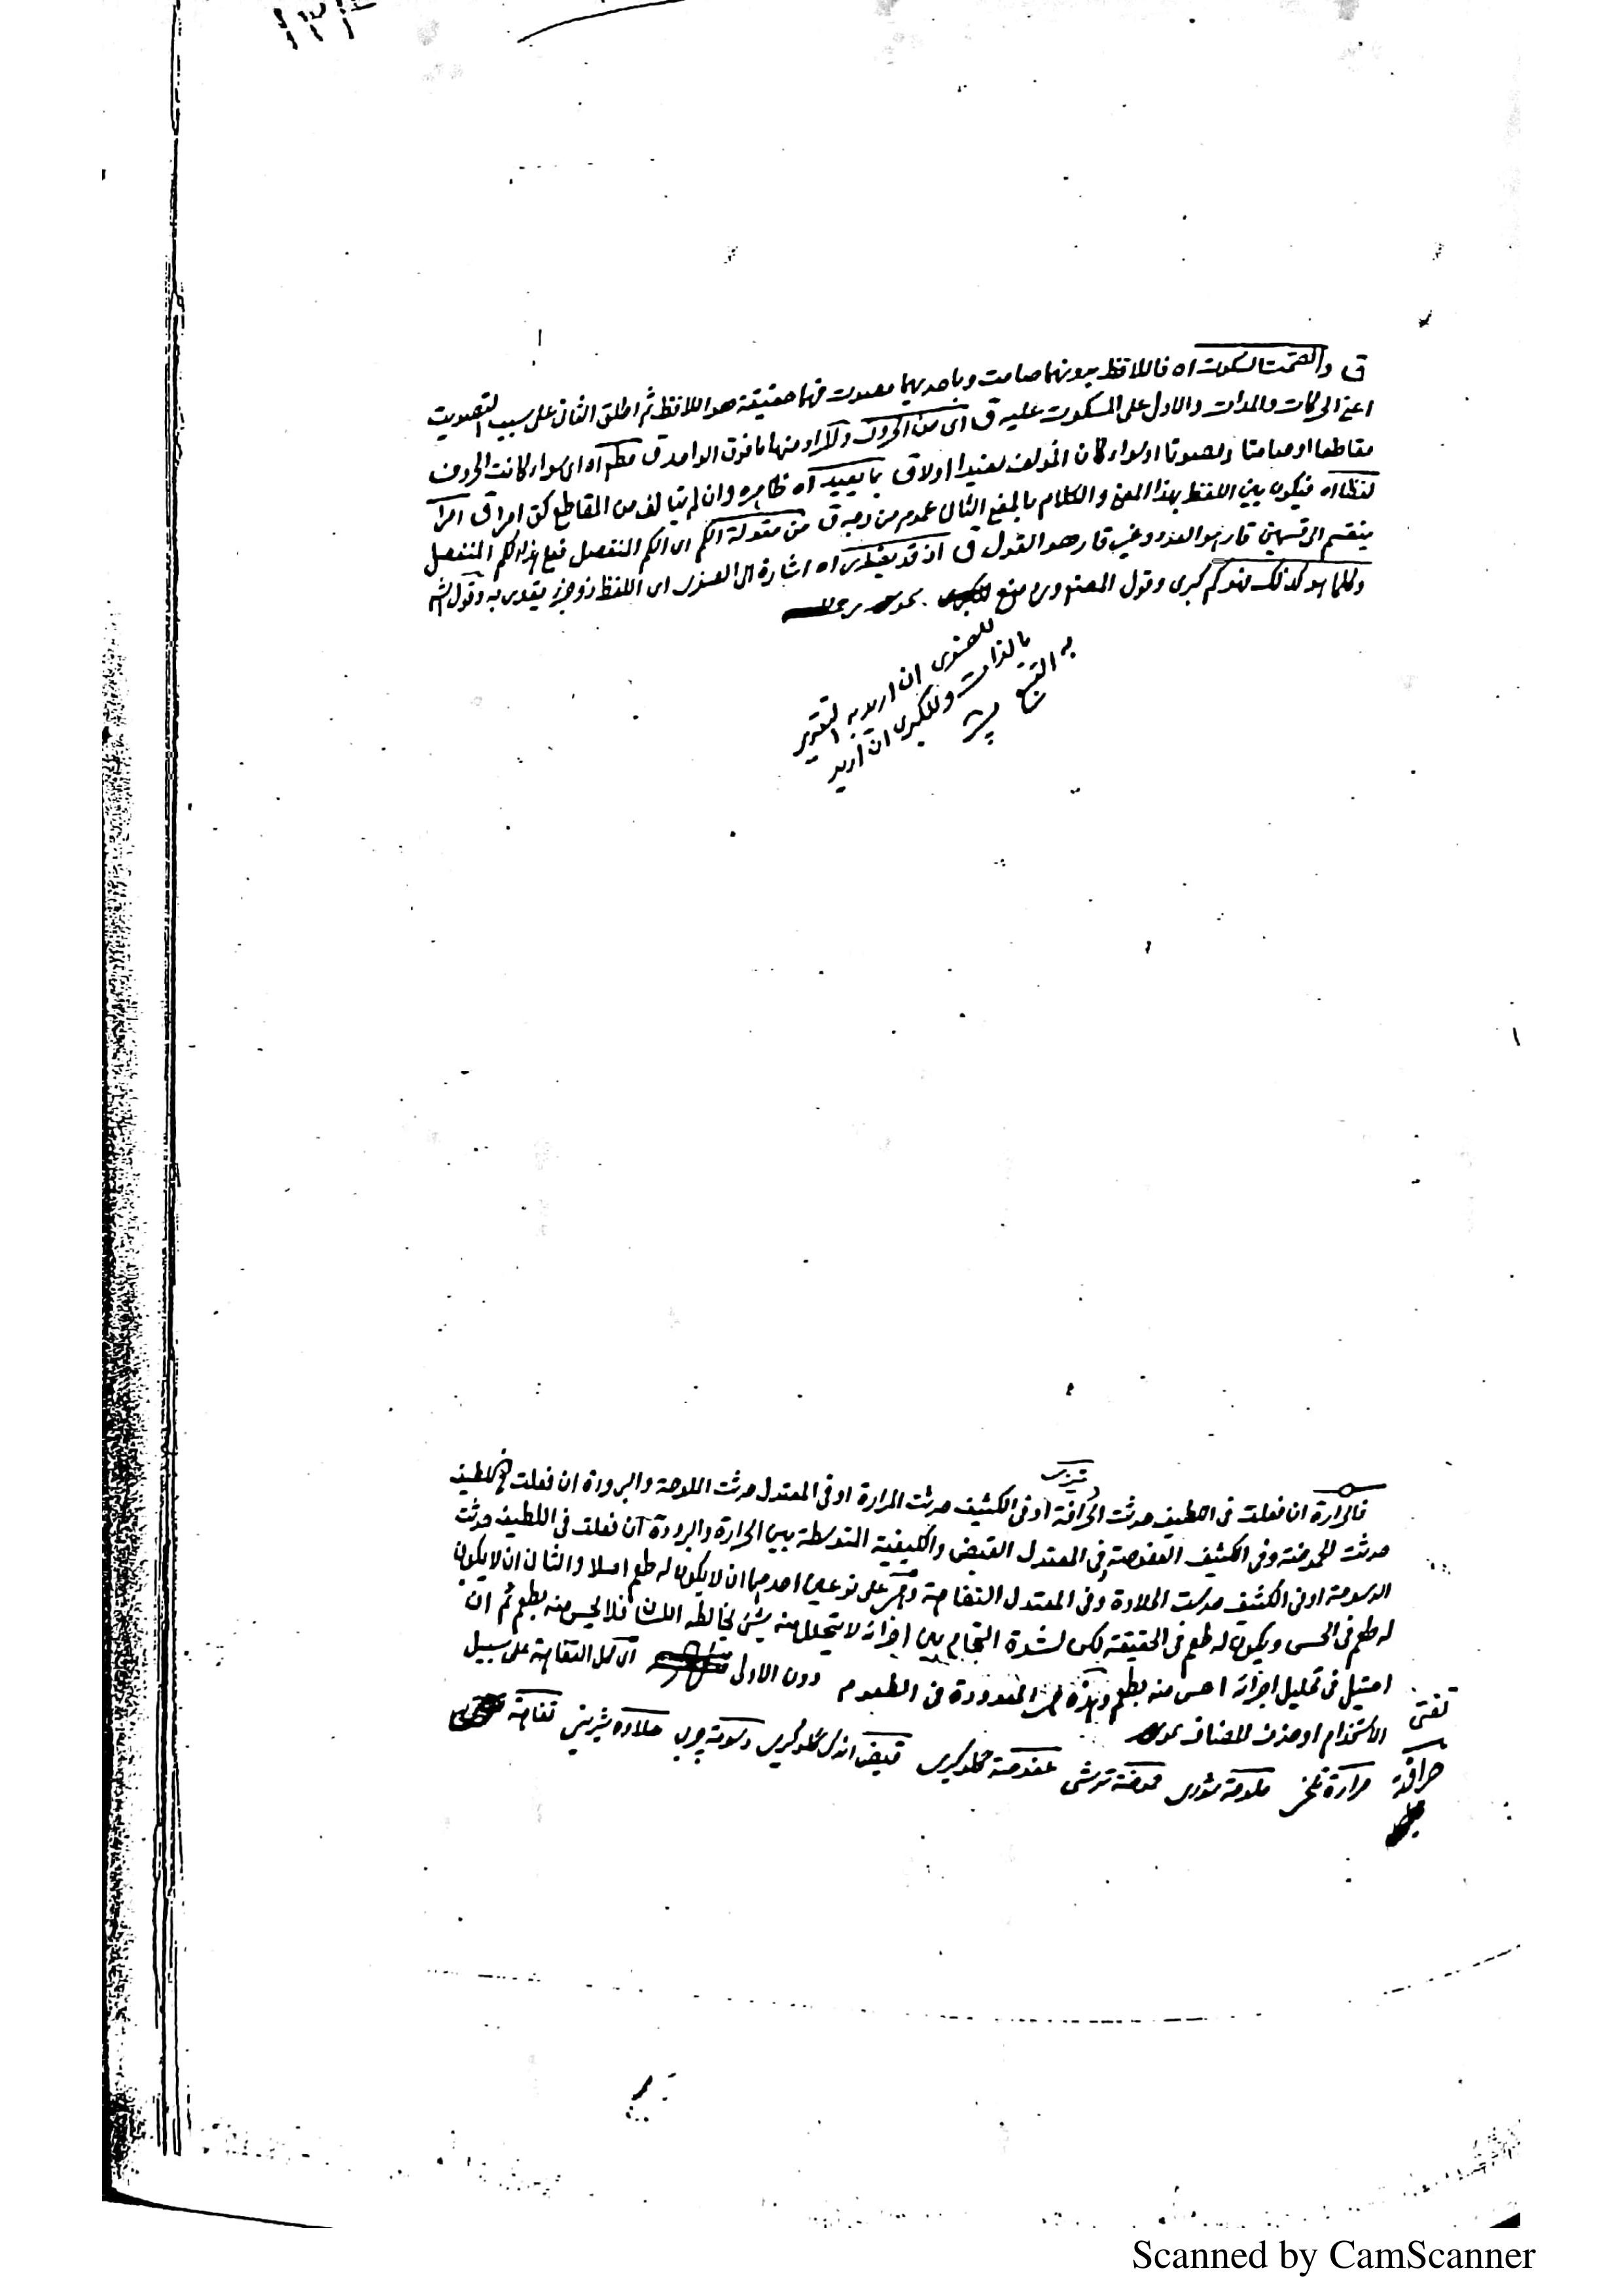 ق والصمت السكوت اه فاللافظ بدونهما صامت وباحديهما مصوت فهما حقيقة هو اللافظ ثم اطلق الثانى على سبب التصويت
اعنى الحركات والمدات والاول على المسكوت عليه ق اى من الحروف والمراد منها ما فوق الواحد ق مطم اه اى سواء كانت الحروف
مقاطعا او صامتا ومصوتا او سواء كان المؤلف مفيدا اولا ق بما يفيد اه ظاهره وان لم يتالف من المقاطع كق امرا ق
لفظا اه فيكون بين اللفظ بهذا المعنى والكلام بالمعنى الثانى عموم من وجه ق من مقولة الكم اى الكم المنفصل فمع هذا الكم المنفصل
ينقسم الى قسمين قار هو العدد وغير قار هو القول ق اذ قد يتقدر اه اشارة الى الصغرى اى اللفظ ذو جزء يتقدر به وقول الش
وكلما هو كذلك فهو كم كبرى وقول المصنف وربما منع
للصغرى ان اريد به التقدير
بالذات وللكبرى ان اريد
به
فالحرارة ان فعلت فى اللطيف حدثت الحرافة او فى الكثيف حدثت المرارة او فى المعتدل حدثت الملوحة والبرودة ان فعلت فى اللطيف
حدثت الحموضة وفى الكثيف العفوصة وفى المعتدل القبض والكيفية المتوسطة بين الحرارة والبرودة ان فعلت فى اللطيف حدثت
الدسومة او فى الكثيف حدثت الحلاوة وفى المعتدل التفاهة وهى على نوعين احدهما ان لا يكون له طعم اصلا والثانى ان لا يكون
له طعم فى الحس ويكون له طعم فى الحقيقة لكن لشدة التحام بين اجزائه لا يتحلل منه شئ يخالطه اللسان فلا يحس منه بطعم ثم ان
احتيل فى تحليل اجزائه احس منه بطعم وهذه هى المعدودة فى الطعوم دون الاولى اى كل التفاهة على سبيل
الاستخدام او حذف المضاف
حرافة مرارة تلخى ملوحة شورى حموضة ترشى عفوصة گلوگيرى قبض اندك گلوگيرى دسومة چربى حلاوة شيرينى تفاهة